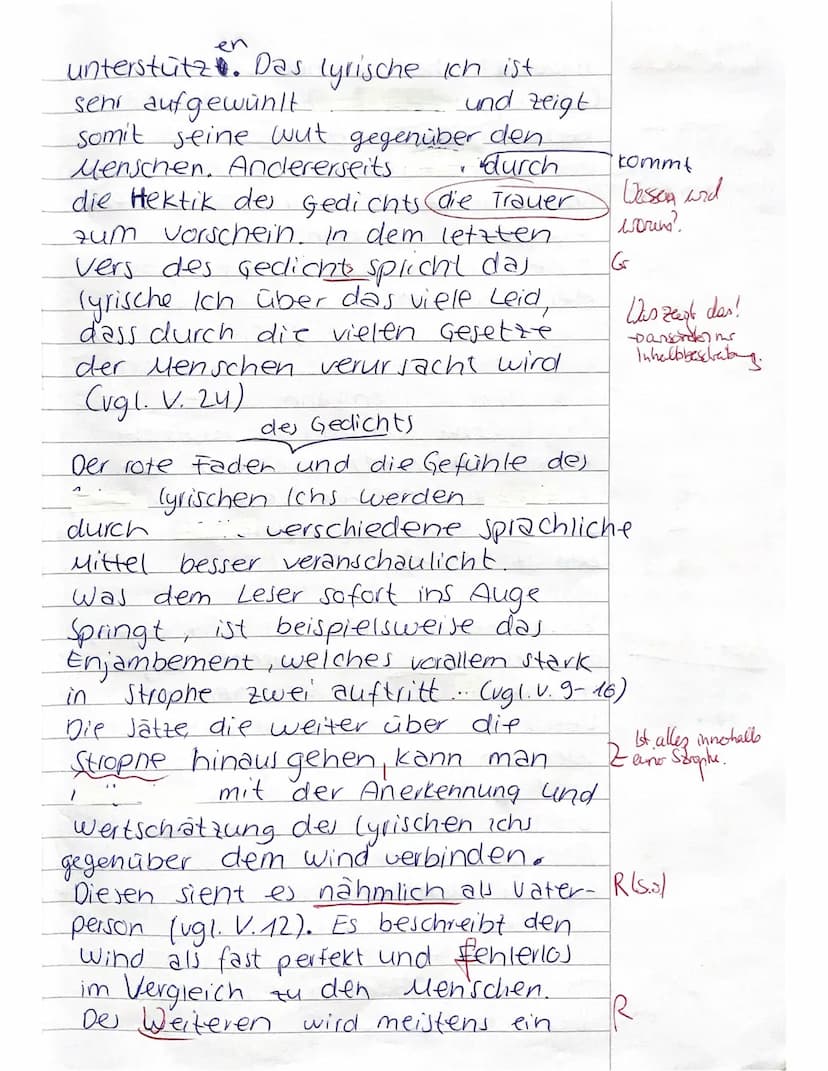 en
unterstütz. Das lyrische Ich ist
sehr aufgewühlt und zeigt
somit seine Wut gegenüber den
Menschen. Andererseits durch kommt
die Hektik des Gedichts die Trauer Wessen und
zum vorschein. In dem letzten worum?
Vers des Gedichts spricht das Gr
lyrische Ich über das viele Leid,
dass durch die vielen Gesetze Was zeigt das!
der Menschen verursacht wird Inhaltsbeschreibung.
(vgl. V. 24)
des Gedichts
Der rote Faden und die Gefühle des
lyrischen Ichs werden
durch verschiedene sprachliche
Mittel besser veranschaulicht.
Was dem Leser sofort ins Auge
Springt, ist beispielsweise das
Enjambement, welches vorallem stark
in Strophe zwei auftritt (vgl. V. 9-16)
Die Sätze, die weiter über die
Strophe hinaus gehen, kann man Z Ist alles innerhalb einer Strophe.
mit der Anerkennung und
Wertschätzung des lyrischen Ichs
gegenüber dem Wind verbinden.
Diesen sieht es nähmlich als Vater- R (s.o)
person (vgl. V. 12). Es beschreibt den
Wind als fast perfekt und fehlerlos
im Vergleich zu den Menschen.
Des Weiteren wird meistens ein R